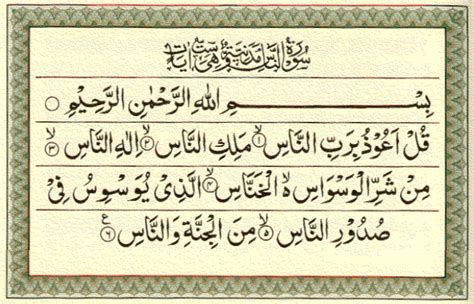 سُوْرَةُ النَّاسِ مَدَنِيَّةٌ وَّهِيَ سِتُّ اٰيَاتٍ
بِسْمِ اللهِ الرَّحْمٰنِ الرَّحِيْمِ ○
قُلْ اَعُوْذُ بِرَبِّ النَّاسِ ۙ﴿۱﴾ مَلِكِ النَّاسِ ۙ﴿۲﴾ اِلٰهِ النَّاسِ ۙ﴿۳﴾
مِنْ شَرِّ الْوَسْوَاسِ ۙ۬ الْخَنَّاسِ ۙ﴿۴﴾ الَّذِيْ يُوَسْوِسُ فِيْ
صُدُوْرِ النَّاسِ ۙ﴿۵﴾ مِنَ الْجِنَّةِ وَالنَّاسِ ﴿۶﴾ ع